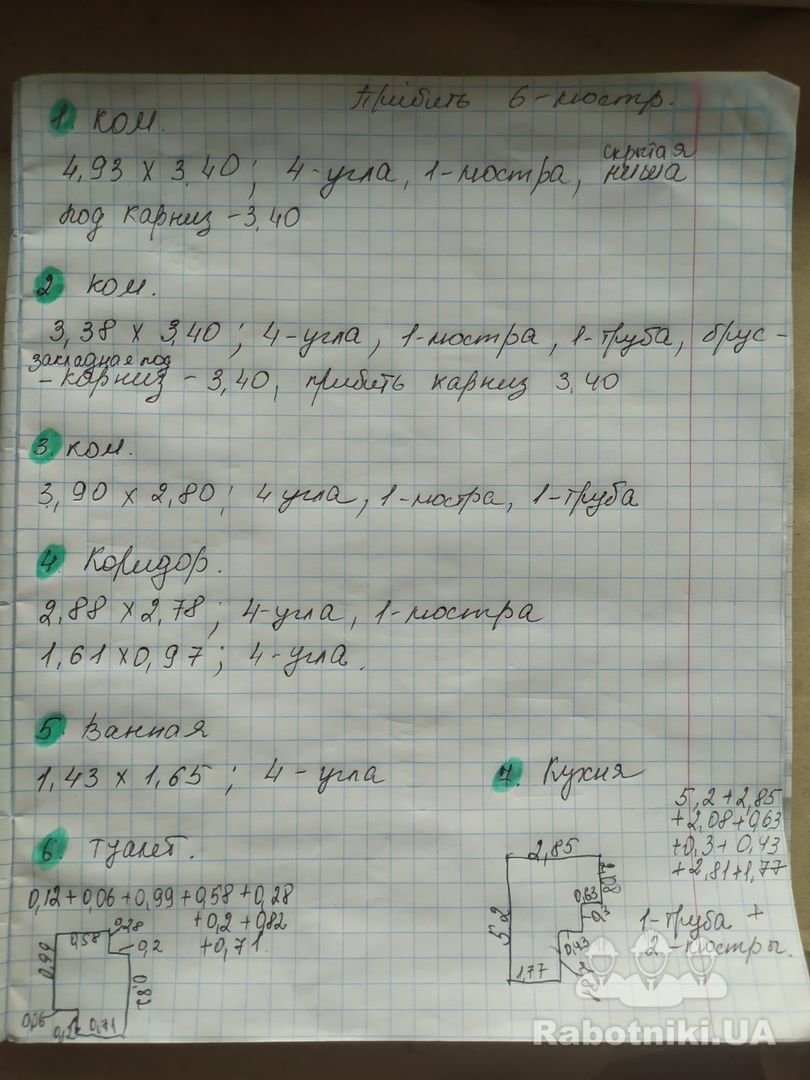 Прибить 6-люстр.
1. ком.
4,93 х 3,40; 4-угла, 1-люстра, скрытая ниша
под карниз -3,40
2 ком.
3,38 х 3,40; 4-угла, 1-люстра, 1-труба, брус-
закладная под
-карниз - 3,40, прибить карниз 3.40
3. ком.
3,90 х 2,80; 4 угла, 1-люстра, 1-труба
4. Коридор.
2,88 х 2,78; 4-угла, 1-люстра
1,61 х 0,97; 4-угла.
5. Ванная
1,43 х 1,65; 4-угла
6. Туалет.
0,12+0,06+0,99+0,58+0,28
+0,2+0,82
+0,71.
0,28
0,58
0,2
0,99
0,82
0,06
0,12
0,71
7. Кухня
5,2+2,85
+2,08+0,63
+0,3+0,43
+2,81+1,77
2,85
2,08
0,63
0,3
5.2
0,43
2,81
1,77
1-труба +
2-люстры.
Rabotniki.UA